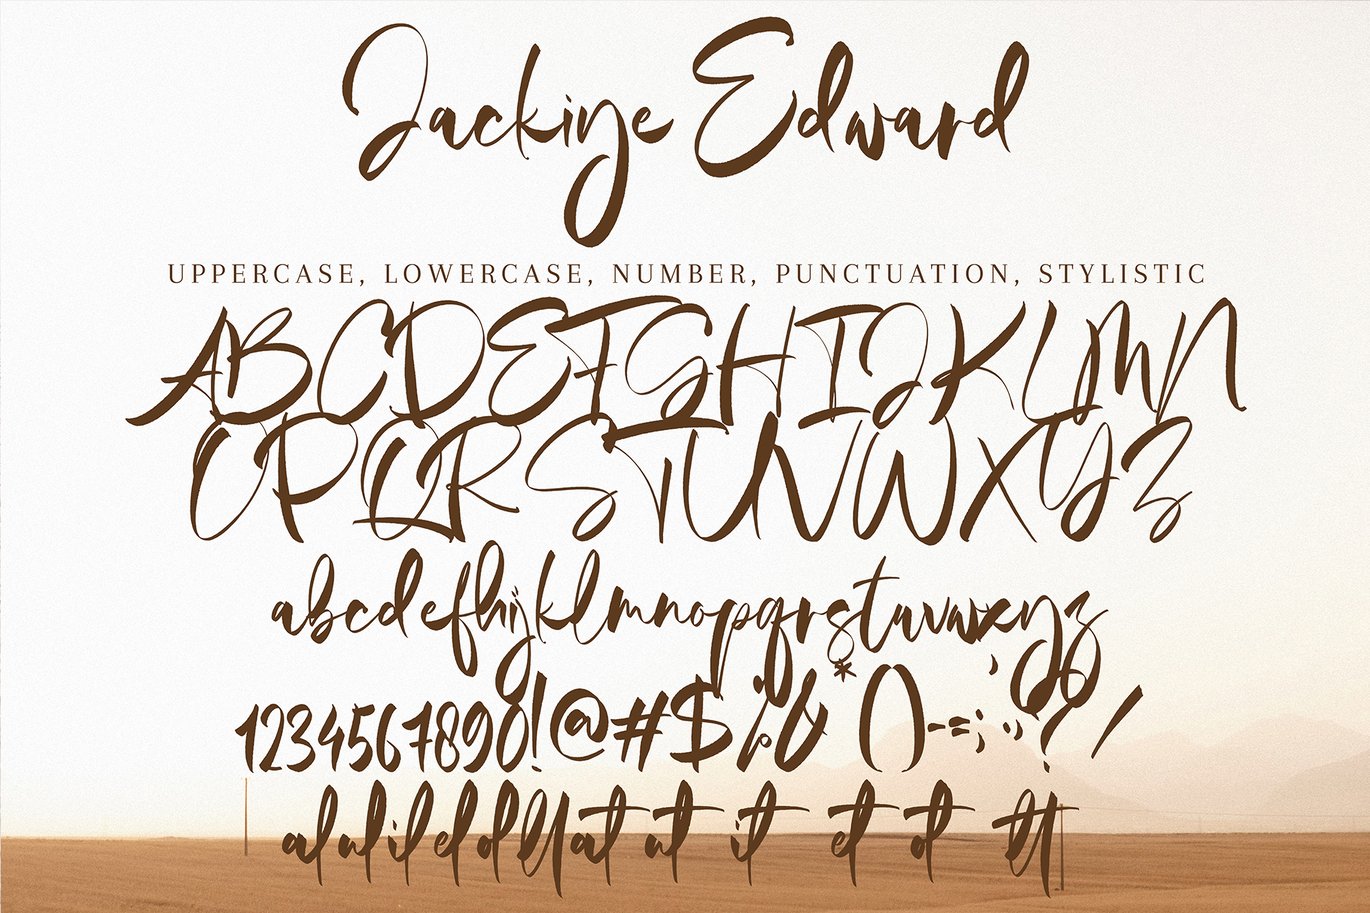 Jackiye Edward
UPPERCASE, LOWERCASE, NUMBER, PUNCTUATION, STYLISTIC
ABCDEFGHIJKLMN
OPQRSTUVWXYZ
abcdefghijklmnopqrstuvwxyz
1234567890!@#$%&*()-=;:"?/
al ul il el ol ll at ut it et ot tt